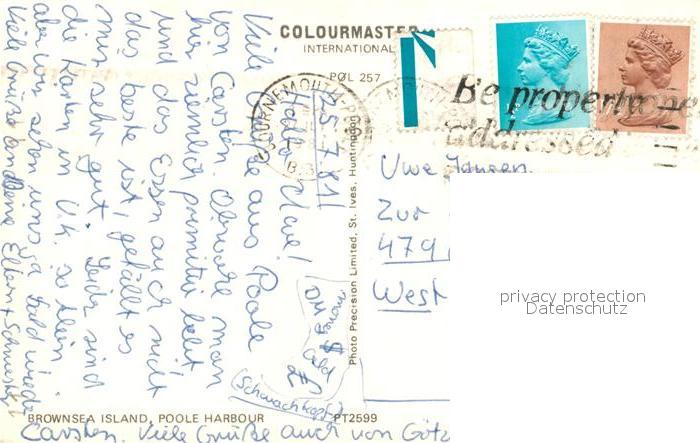 COLOURMASTER
INTERNATIONAL
POL 257
BOURNEMOUTH-POOLE
Be properly
addressed
25.7.81
Hallo Uwe!
Viele Grüße aus Poole
von Carsten. Obwohl man
hier ziemlich primitiv lebt
und das Essen auch nicht
das beste ist, gefällt es
mir sehr gut. Leider sind
die Karten in U.K. so klein,
aber wir sehen uns ja bald wieder.
Viele Grüße an Deine Eltern + Schwester!
Carsten. Viele Grüße auch von Götz
DM
$
Geld
£
Photo Precision Limited, St. Ives, Huntingdon
Uwe Jansen
Zur
479
West
privacy protection
Datenschutz
BROWNSEA ISLAND, POOLE HARBOUR
PT2599